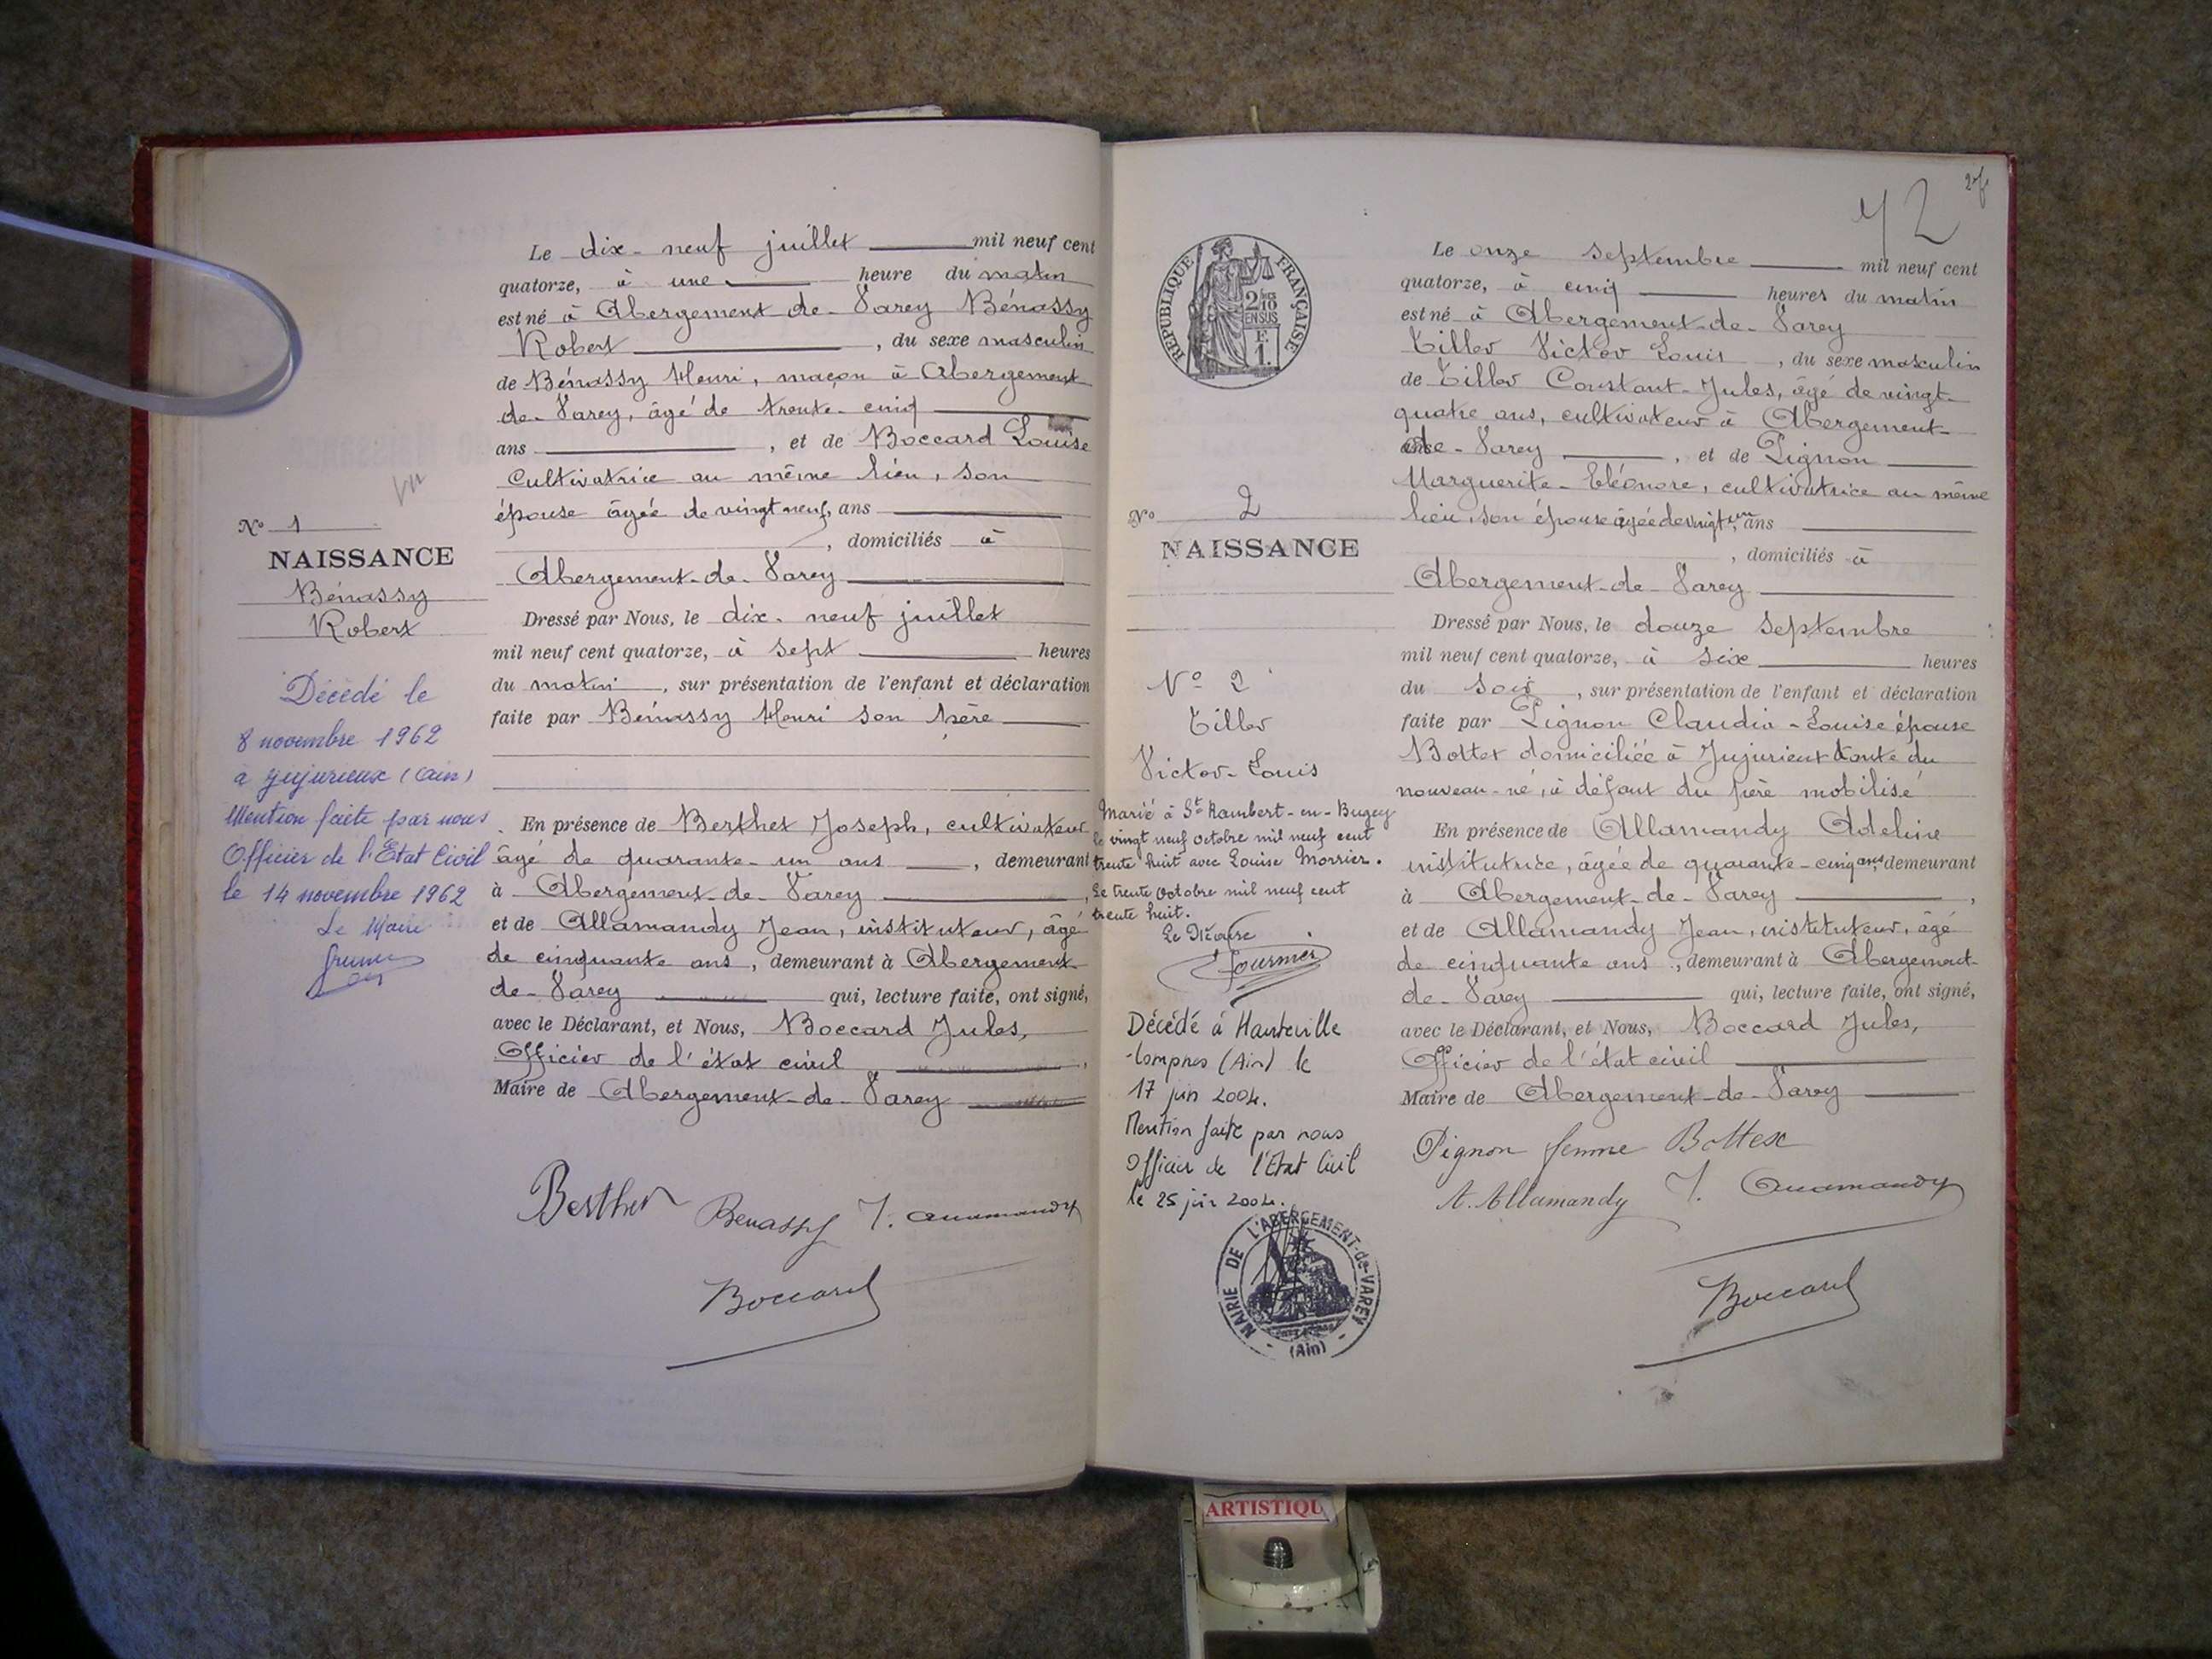 Le dix-neuf juillet mil neuf cent
quatorze, à une heure du matin
est né à Abergement-de-Varey Bénassy
Robert, du sexe masculin
de Bénassy Henri, maçon à Abergement
de-Varey, âgé de trente-cinq
ans, et de Boccard Louise
Cultivatrice au même lieu, son
épouse âgée de vingt neuf, ans
, domiciliés à
Abergement-de-Varey
Dressé par Nous, le dix-neuf juillet
mil neuf cent quatorze, à sept heures
du matin, sur présentation de l'enfant et déclaration
faite par Bénassy Henri son père
En présence de Berthet Joseph, cultivateur
âgé de quarante-un ans, demeurant
à Abergement-de-Varey,
et de Allamandy Jean, instituteur, âgé
de cinquante ans, demeurant à Abergement
de-Varey qui, lecture faite, ont signé,
avec le Déclarant, et Nous, Boccard Jules,
Officier de l'état civil
Maire de Abergement-de-Varey
Berthet Benassy J. Allamandy
Boccard
vu
N° 1
NAISSANCE
Bénassy
Robert
Décédé le
8 novembre 1962
à Jujurieux (Ain)
Mention faite par nous
Officier de l'Etat Civil
le 14 novembre 1962
Le Maire
42
REPUBLIQUE FRANÇAISE
2/10
EN SUS
F
1.
N° 2
NAISSANCE
N° 2
Tiller
Victor-Louis
Marié à St Rambert-en-Bugey
le vingt neuf octobre mil neuf cent
trente huit avec Louise Morrier.
Le trente octobre mil neuf cent
trente huit.
Le Maire
Fournier
Décédé à Hauteville
-lompnes (Ain) le
17 juin 2004.
Mention faite par nous
Officier de l'Etat Civil
le 25 juin 2004.
MAIRIE DE L'ABERGEMENT-de-VAREY
(Ain)
Le onze septembre mil neuf cent
quatorze, à cinq heures du matin
est né à Abergement-de-Varey
Tiller Victor Louis, du sexe masculin
de Tiller Constant-Jules, âgé de vingt-
quatre ans, cultivateur à Abergement-
de-Varey, et de Pignon
Marguerite-Eléonore, cultivatrice au même
lieu, son épouse âgée de vingt un, ans
, domiciliés à
Abergement-de-Varey
Dressé par Nous, le douze septembre
mil neuf cent quatorze, à six heures
du soir, sur présentation de l'enfant et déclaration
faite par Pignon Claudia-Louise épouse
Bottex domiciliée à Jujurieux tante du
nouveau-né, à défaut du père mobilisé
En présence de Allamandy Adeline
institutrice, âgée de quarante-cinq ans, demeurant
à Abergement-de-Varey,
et de Allamandy Jean, instituteur, âgé
de cinquante ans, demeurant à Abergement-
de-Varey qui, lecture faite, ont signé,
avec le Déclarant, et Nous, Boccard Jules,
Officier de l'état civil
Maire de Abergement-de-Varey
Pignon femme Bottex
A. Allamandy J. Allamandy
Boccard
ARTISTIQU